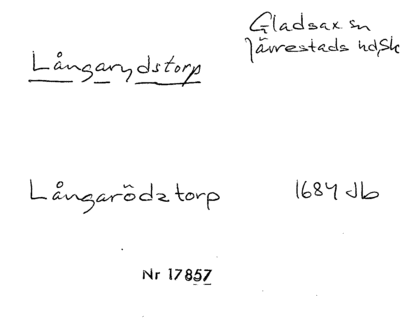 Gladsax sn
Långarydstorp
Järrestads hd, Sk
Långarödz torp 1684 Jb
Nr 17857